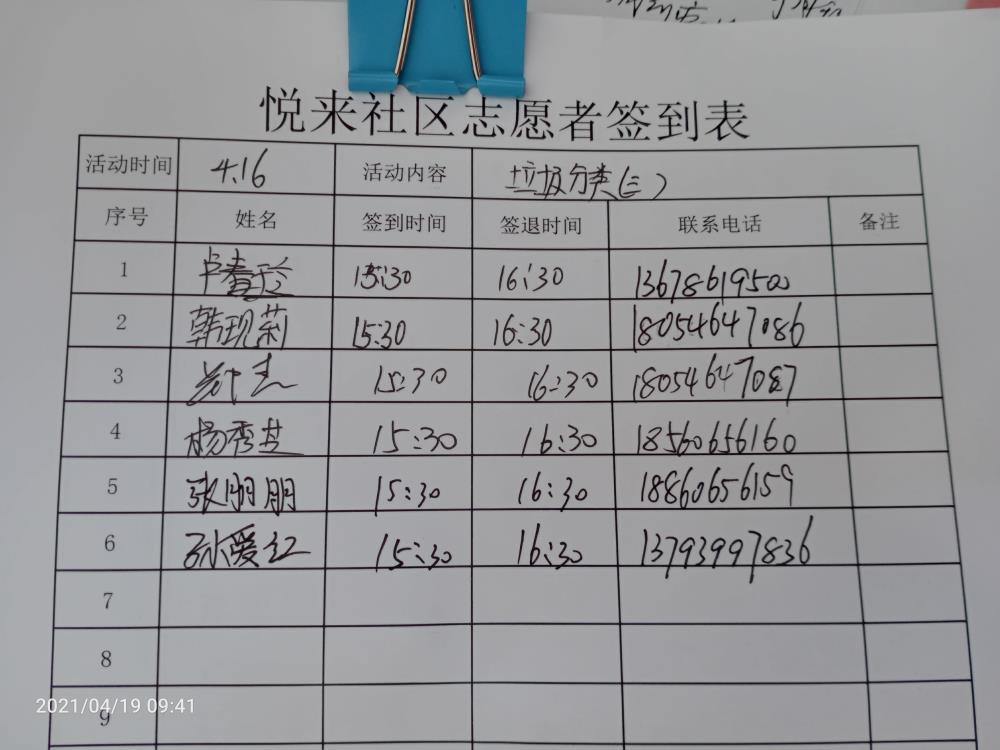 悦来社区志愿者签到表
活动时间 4.16 活动内容 垃圾分类(三)
序号 姓名 签到时间 签退时间 联系电话 备注
1 卢春玲 15:30 16:30 13678619500
2 韩现莉 15:30 16:30 18054647086
3 15:30 16:30 18054647087
4 杨秀芝 15:30 16:30 18560656160
5 张朋朋 15:30 16:30 18860656159
6 孙爱红 15:30 16:30 13793997836
7
8
9
2021/04/19 09:41